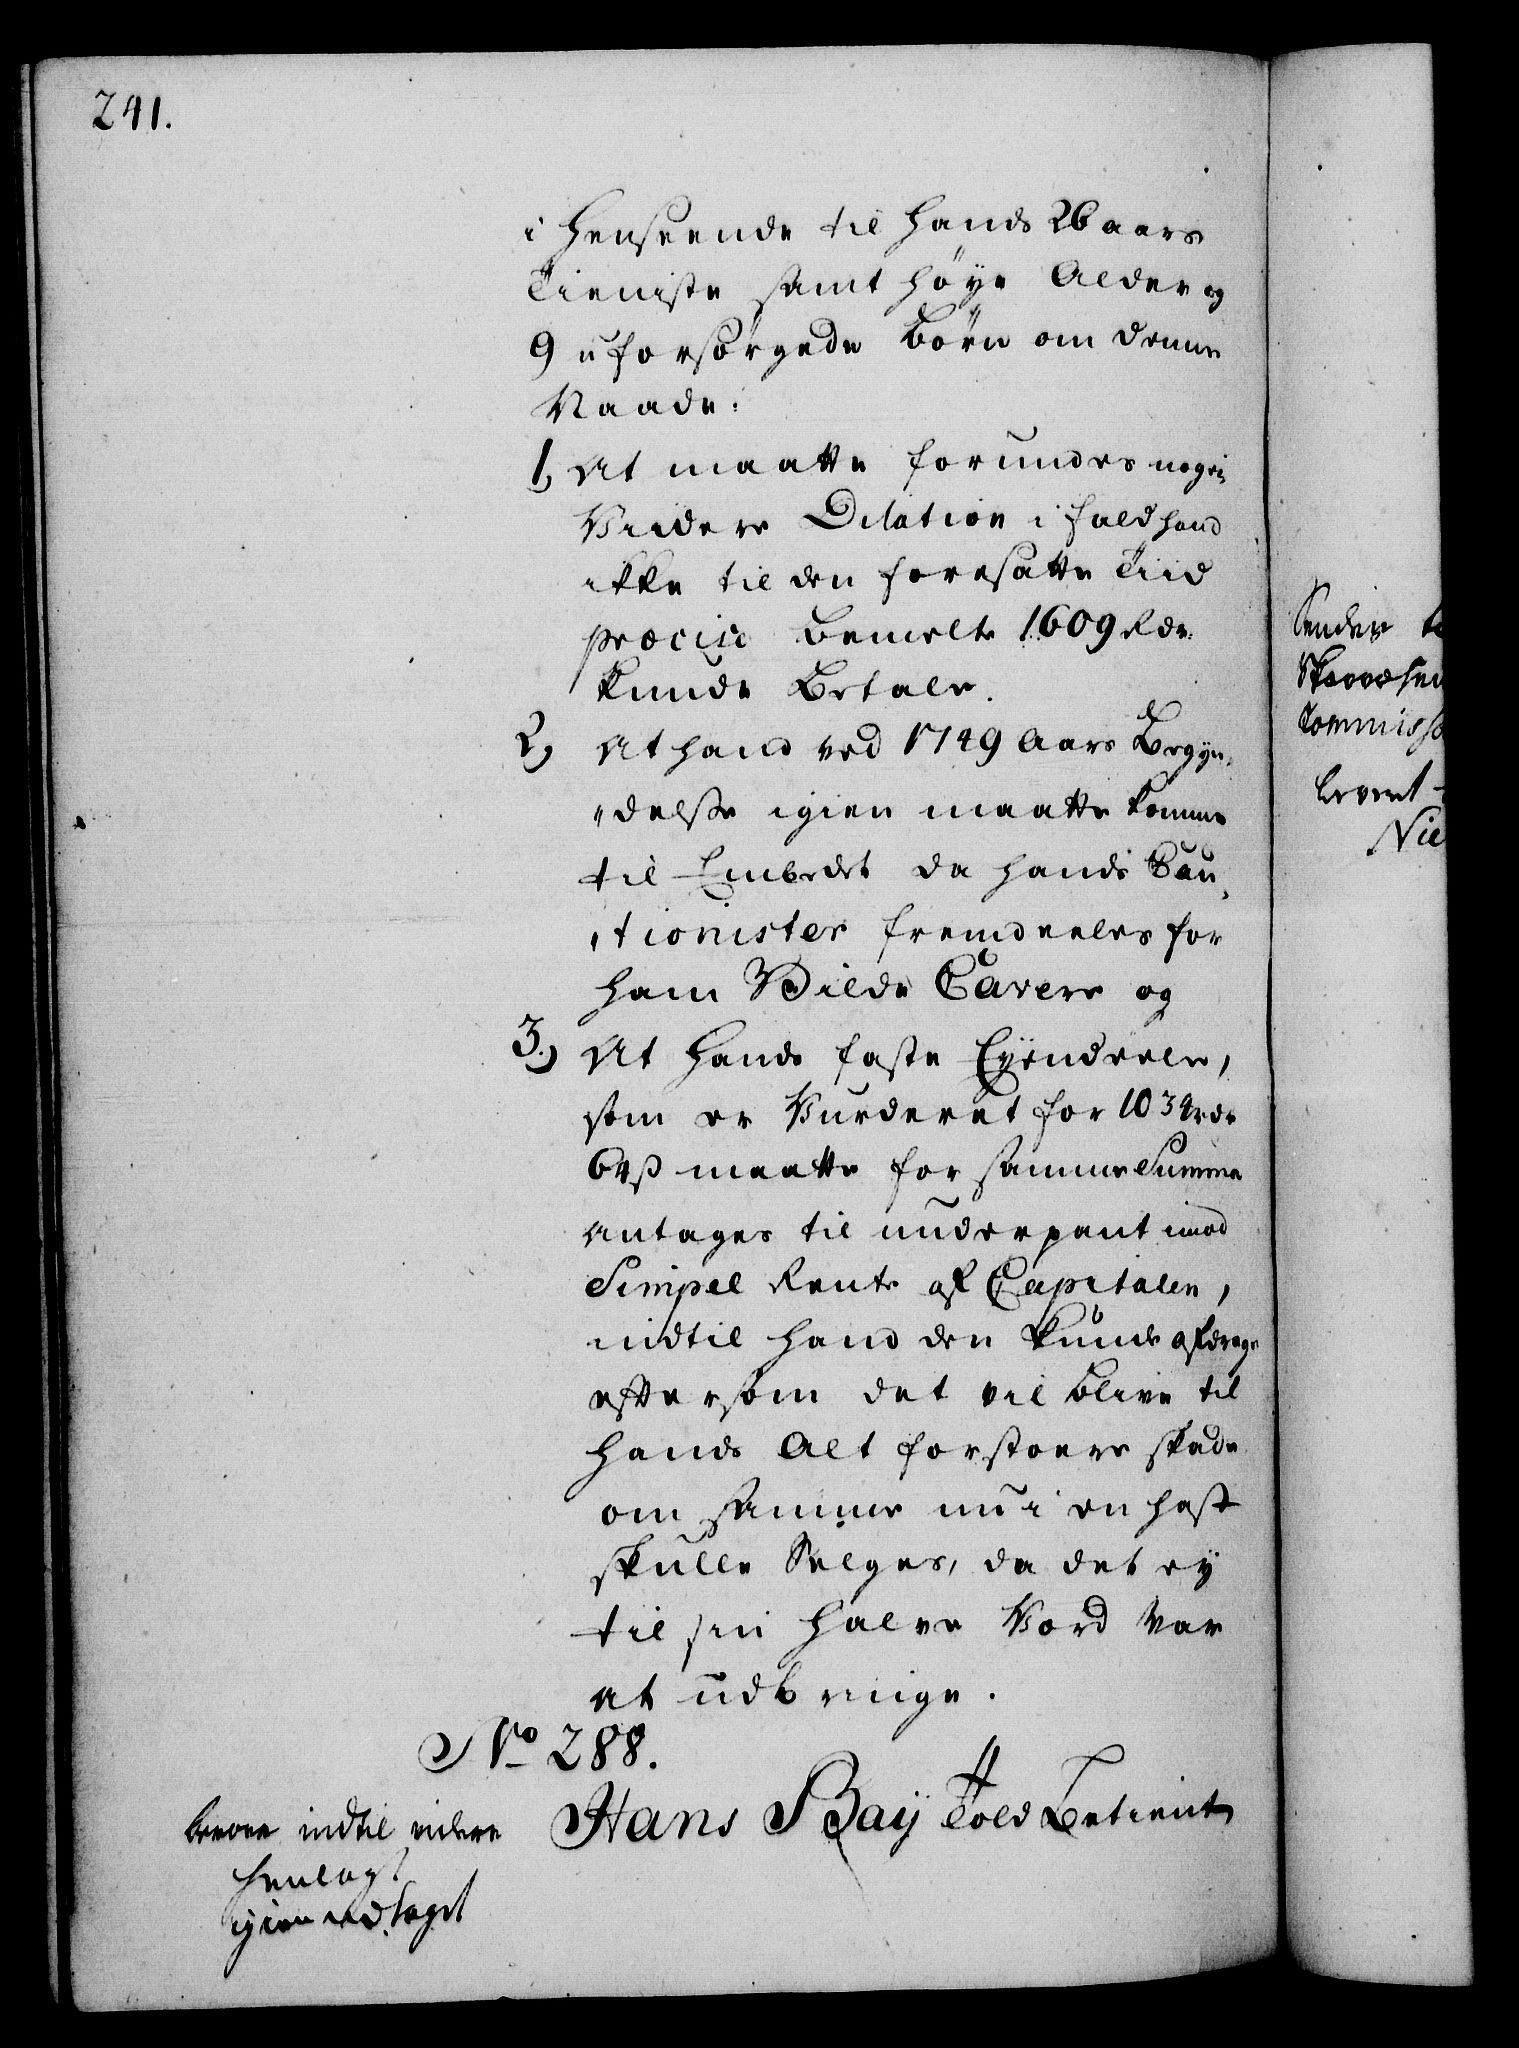 241.
i Henseende til hands 26 aars
Tieniste samt høye Alder og
9 uforsørgede Børn om denne
Naade:
1, At maatte forundes nogen
Viidere Dilation i fald hand
ikke til den foresatte Tiid
præcise bemelte 1609 Rdr.
kunde Betale.
2, At hand ved 1749 Aars Begyn-
delsse igien maatte komme
til Embedet da hands Cau-
tionister fremdeeles for
ham Vilde Cavere og
3.) At hands faste Eyendeele,
som er Vurderet for 1034 rdr
64 ß maatte for samme Summa
antages til underpant imod
Simpel Rente af Capitalen,
indtil hand den kunde afdrage
eftersom det vil blive til
hands Alt for stoere skade
om samme nu i en hast
skulle Selges, da det ey
til sin halve Vord var
at udbringe.
No 288.
Hans Baÿ Told Betient
beroer indtil videre
henlagt
igien udtaget
Sender
Commisso
leveret
Nie